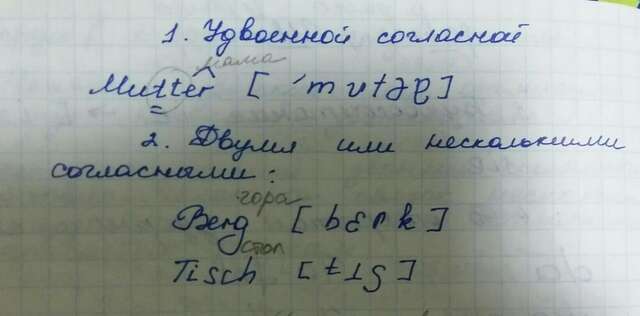 1. Удвоенной согласной
мама
Mutter [ ˈmʊtəʀ ]
2. Двумя или несколькими
согласными:
гора
Berg [ bɛrk ]
стол
Tisch [ tɪʃ ]